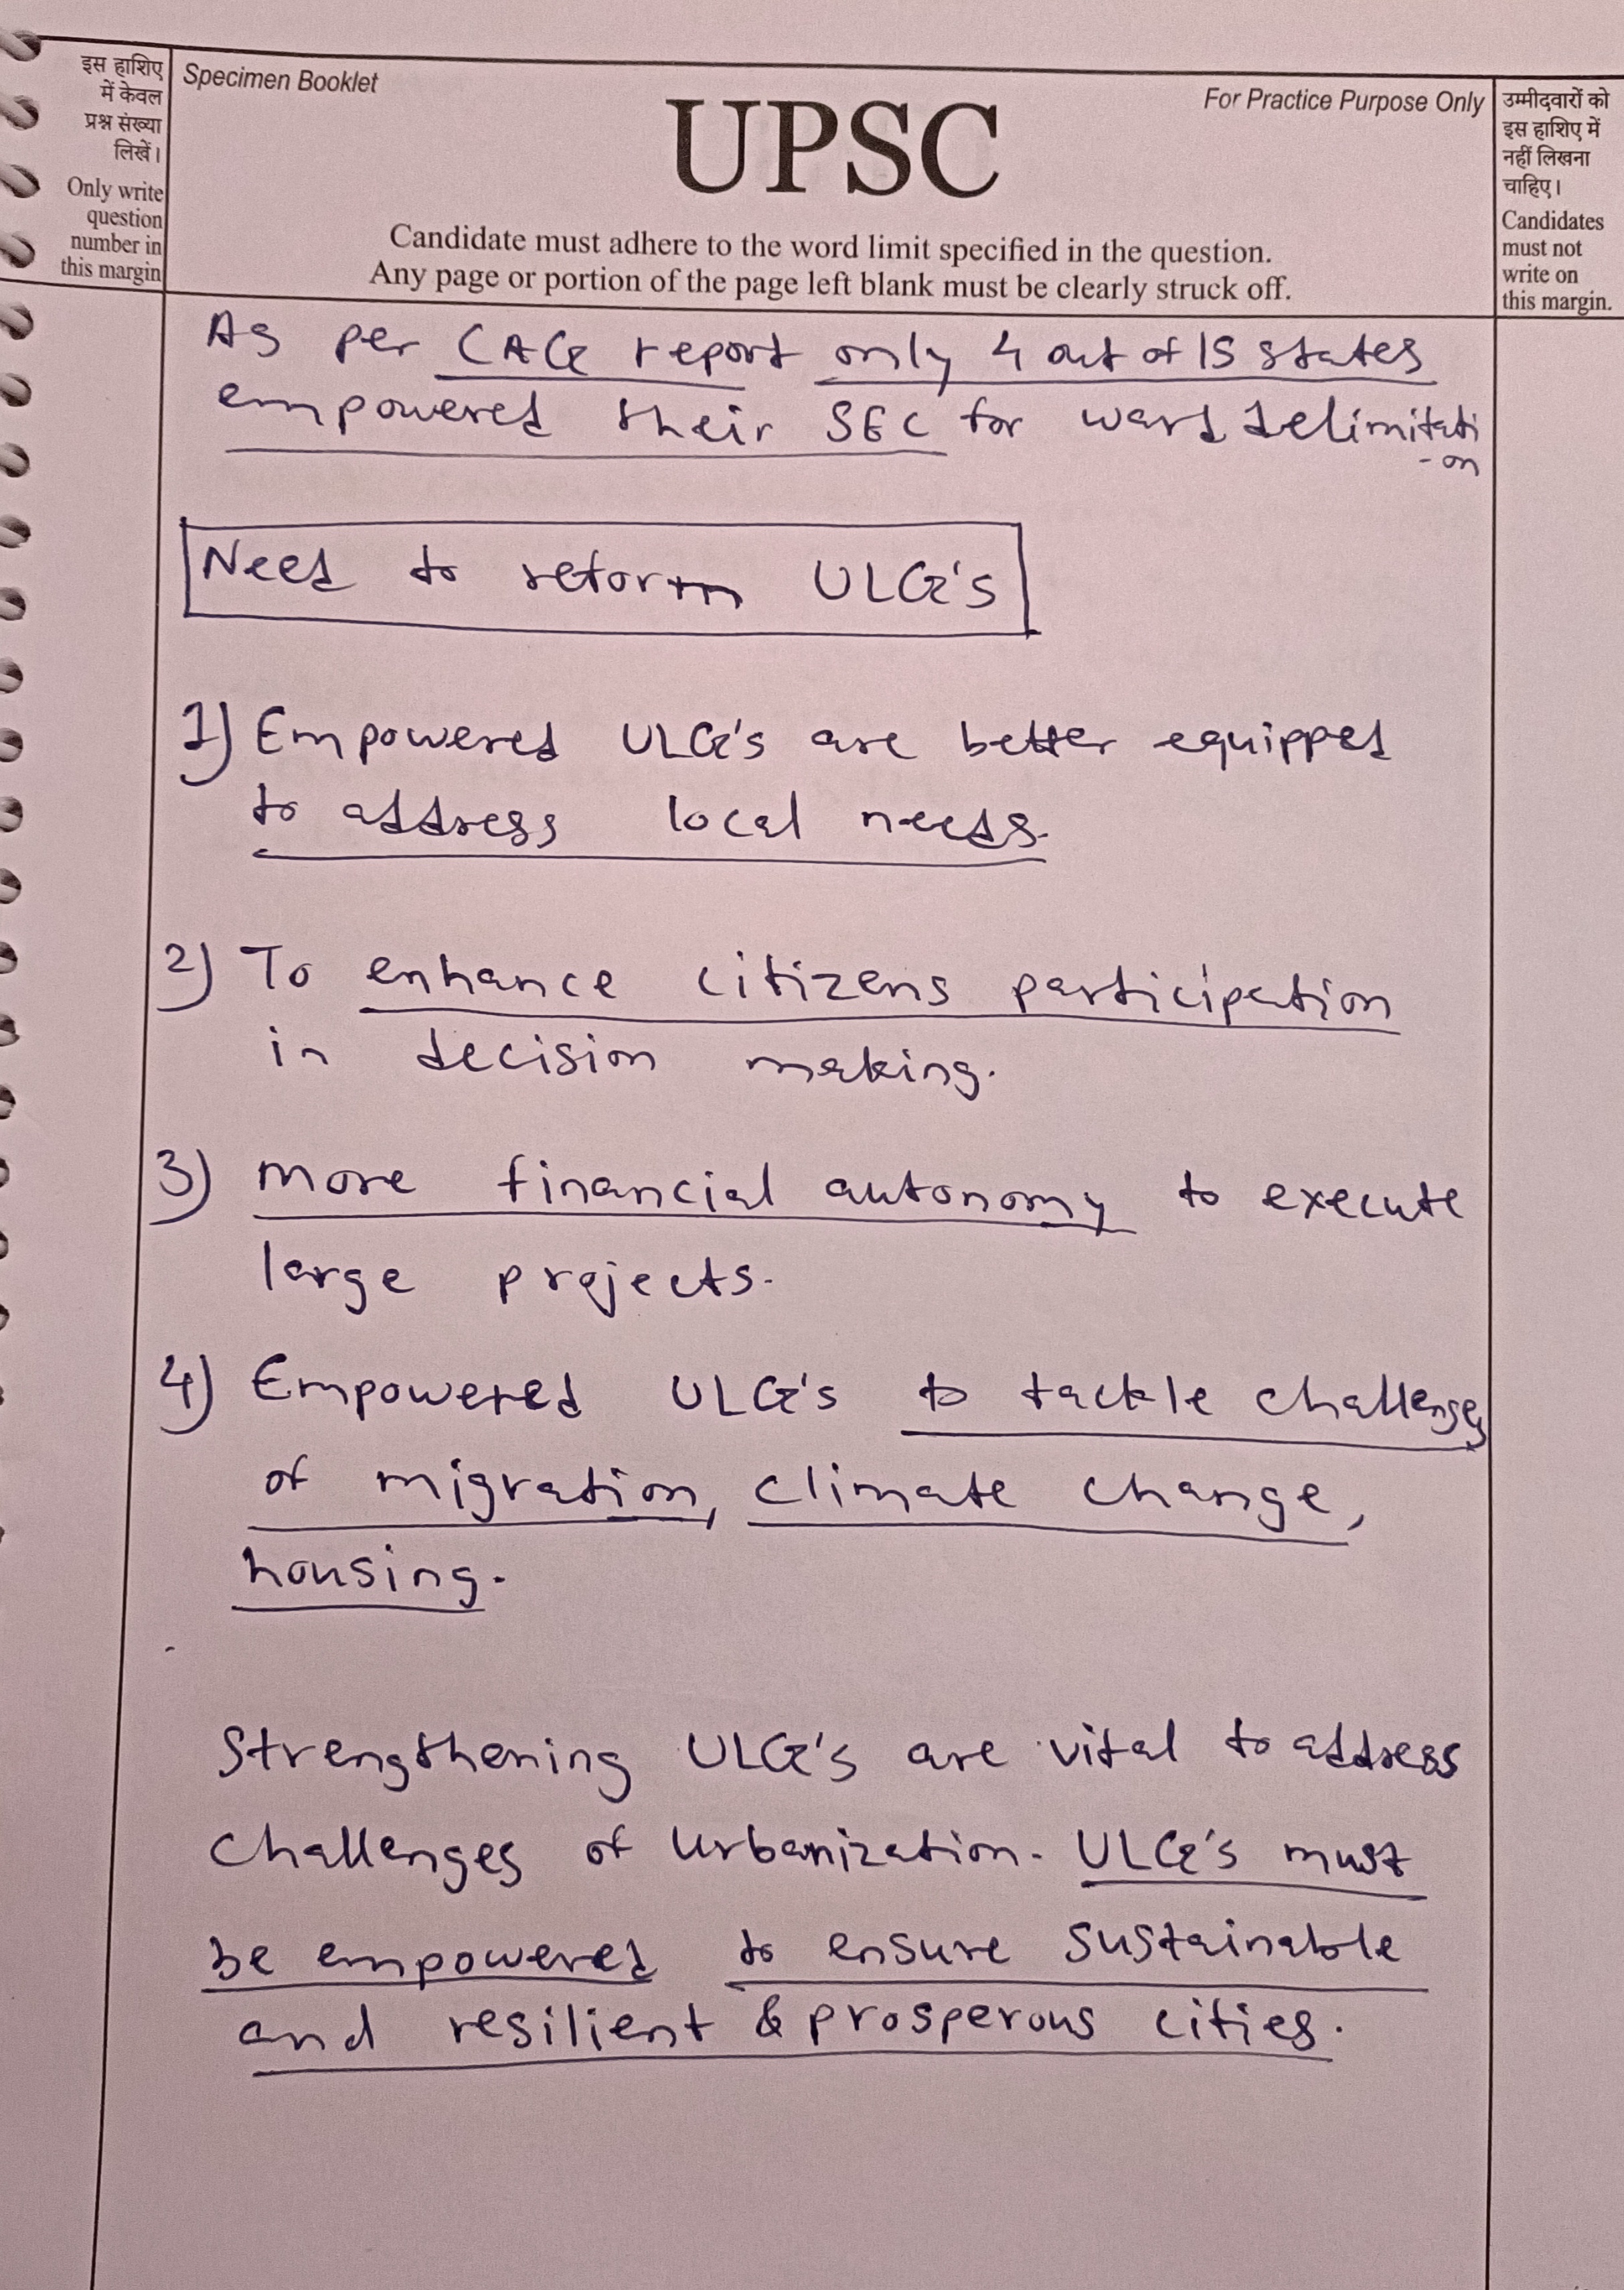 इस हाशिए
में केवल
प्रश्न संख्या
लिखें।
Only write
question
number in
this margin
Specimen Booklet
For Practice Purpose Only
UPSC
Candidate must adhere to the word limit specified in the question.
Any page or portion of the page left blank must be clearly struck off.
उम्मीदवारों को
इस हाशिए में
नहीं लिखना
चाहिए।
Candidates
must not
write on
this margin.
As per CAG report only 4 out of 15 states
empowered their SEC for ward delimitati
-on
Need to reform ULG's
1) Empowered ULG's are better equipped
to address local needs.
2) To enhance citizens participation
in decision making.
3) More financial autonomy to execute
large projects.
4) Empowered ULG's to tackle challenges
of migration, climate change,
housing.
Strengthening ULG's are vital to address
challenges of urbanization. ULG's must
be empowered to ensure sustainable
and resilient & prosperous cities.